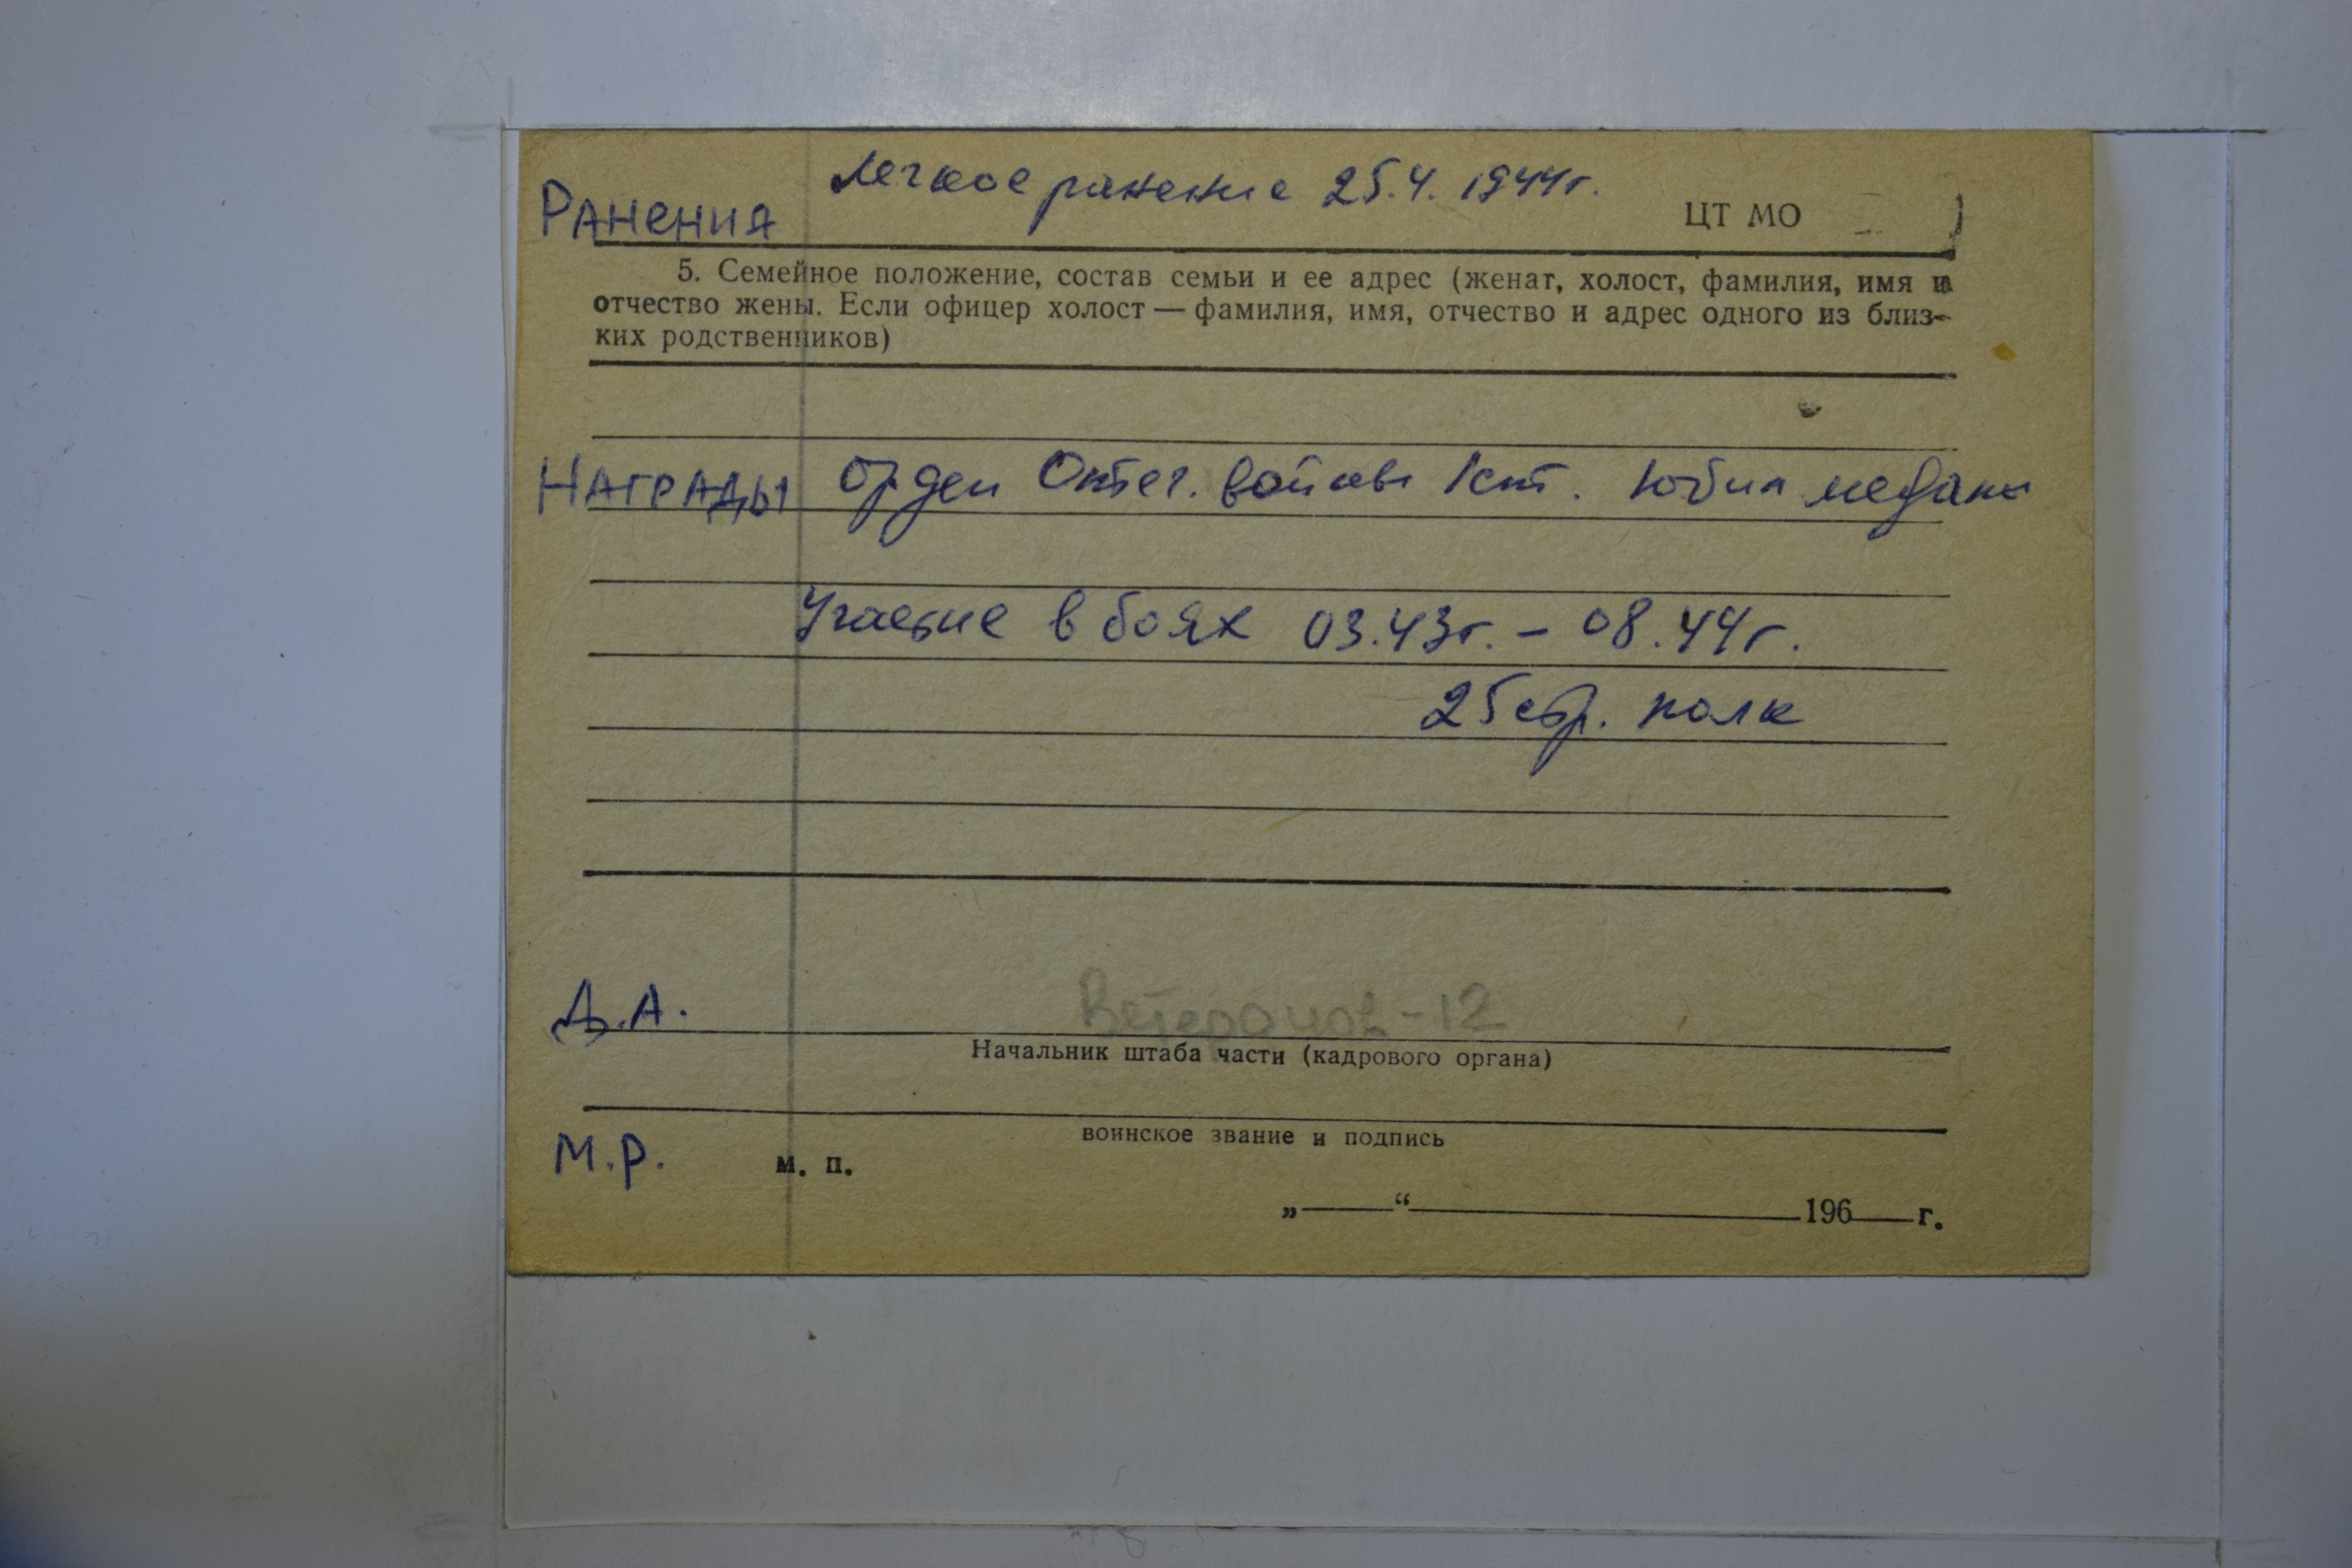 Ранения Легкое ранение 25.4.1944г.
ЦТ МО
5. Семейное положение, состав семьи и ее адрес (женат, холост, фамилия, имя и
отчество жены. Если офицер холост — фамилия, имя, отчество и адрес одного из близ-
ких родственников)
Награды Орден Отеч. войны 1 ст. Юбил медали
Участие в боях 03.43г. – 08.44г.
25 стр. полк
Д.А. Ветеранов-12
Начальник штаба части (кадрового органа)
воинское звание и подпись
М.Р. м. п.
„ “ 196 г.